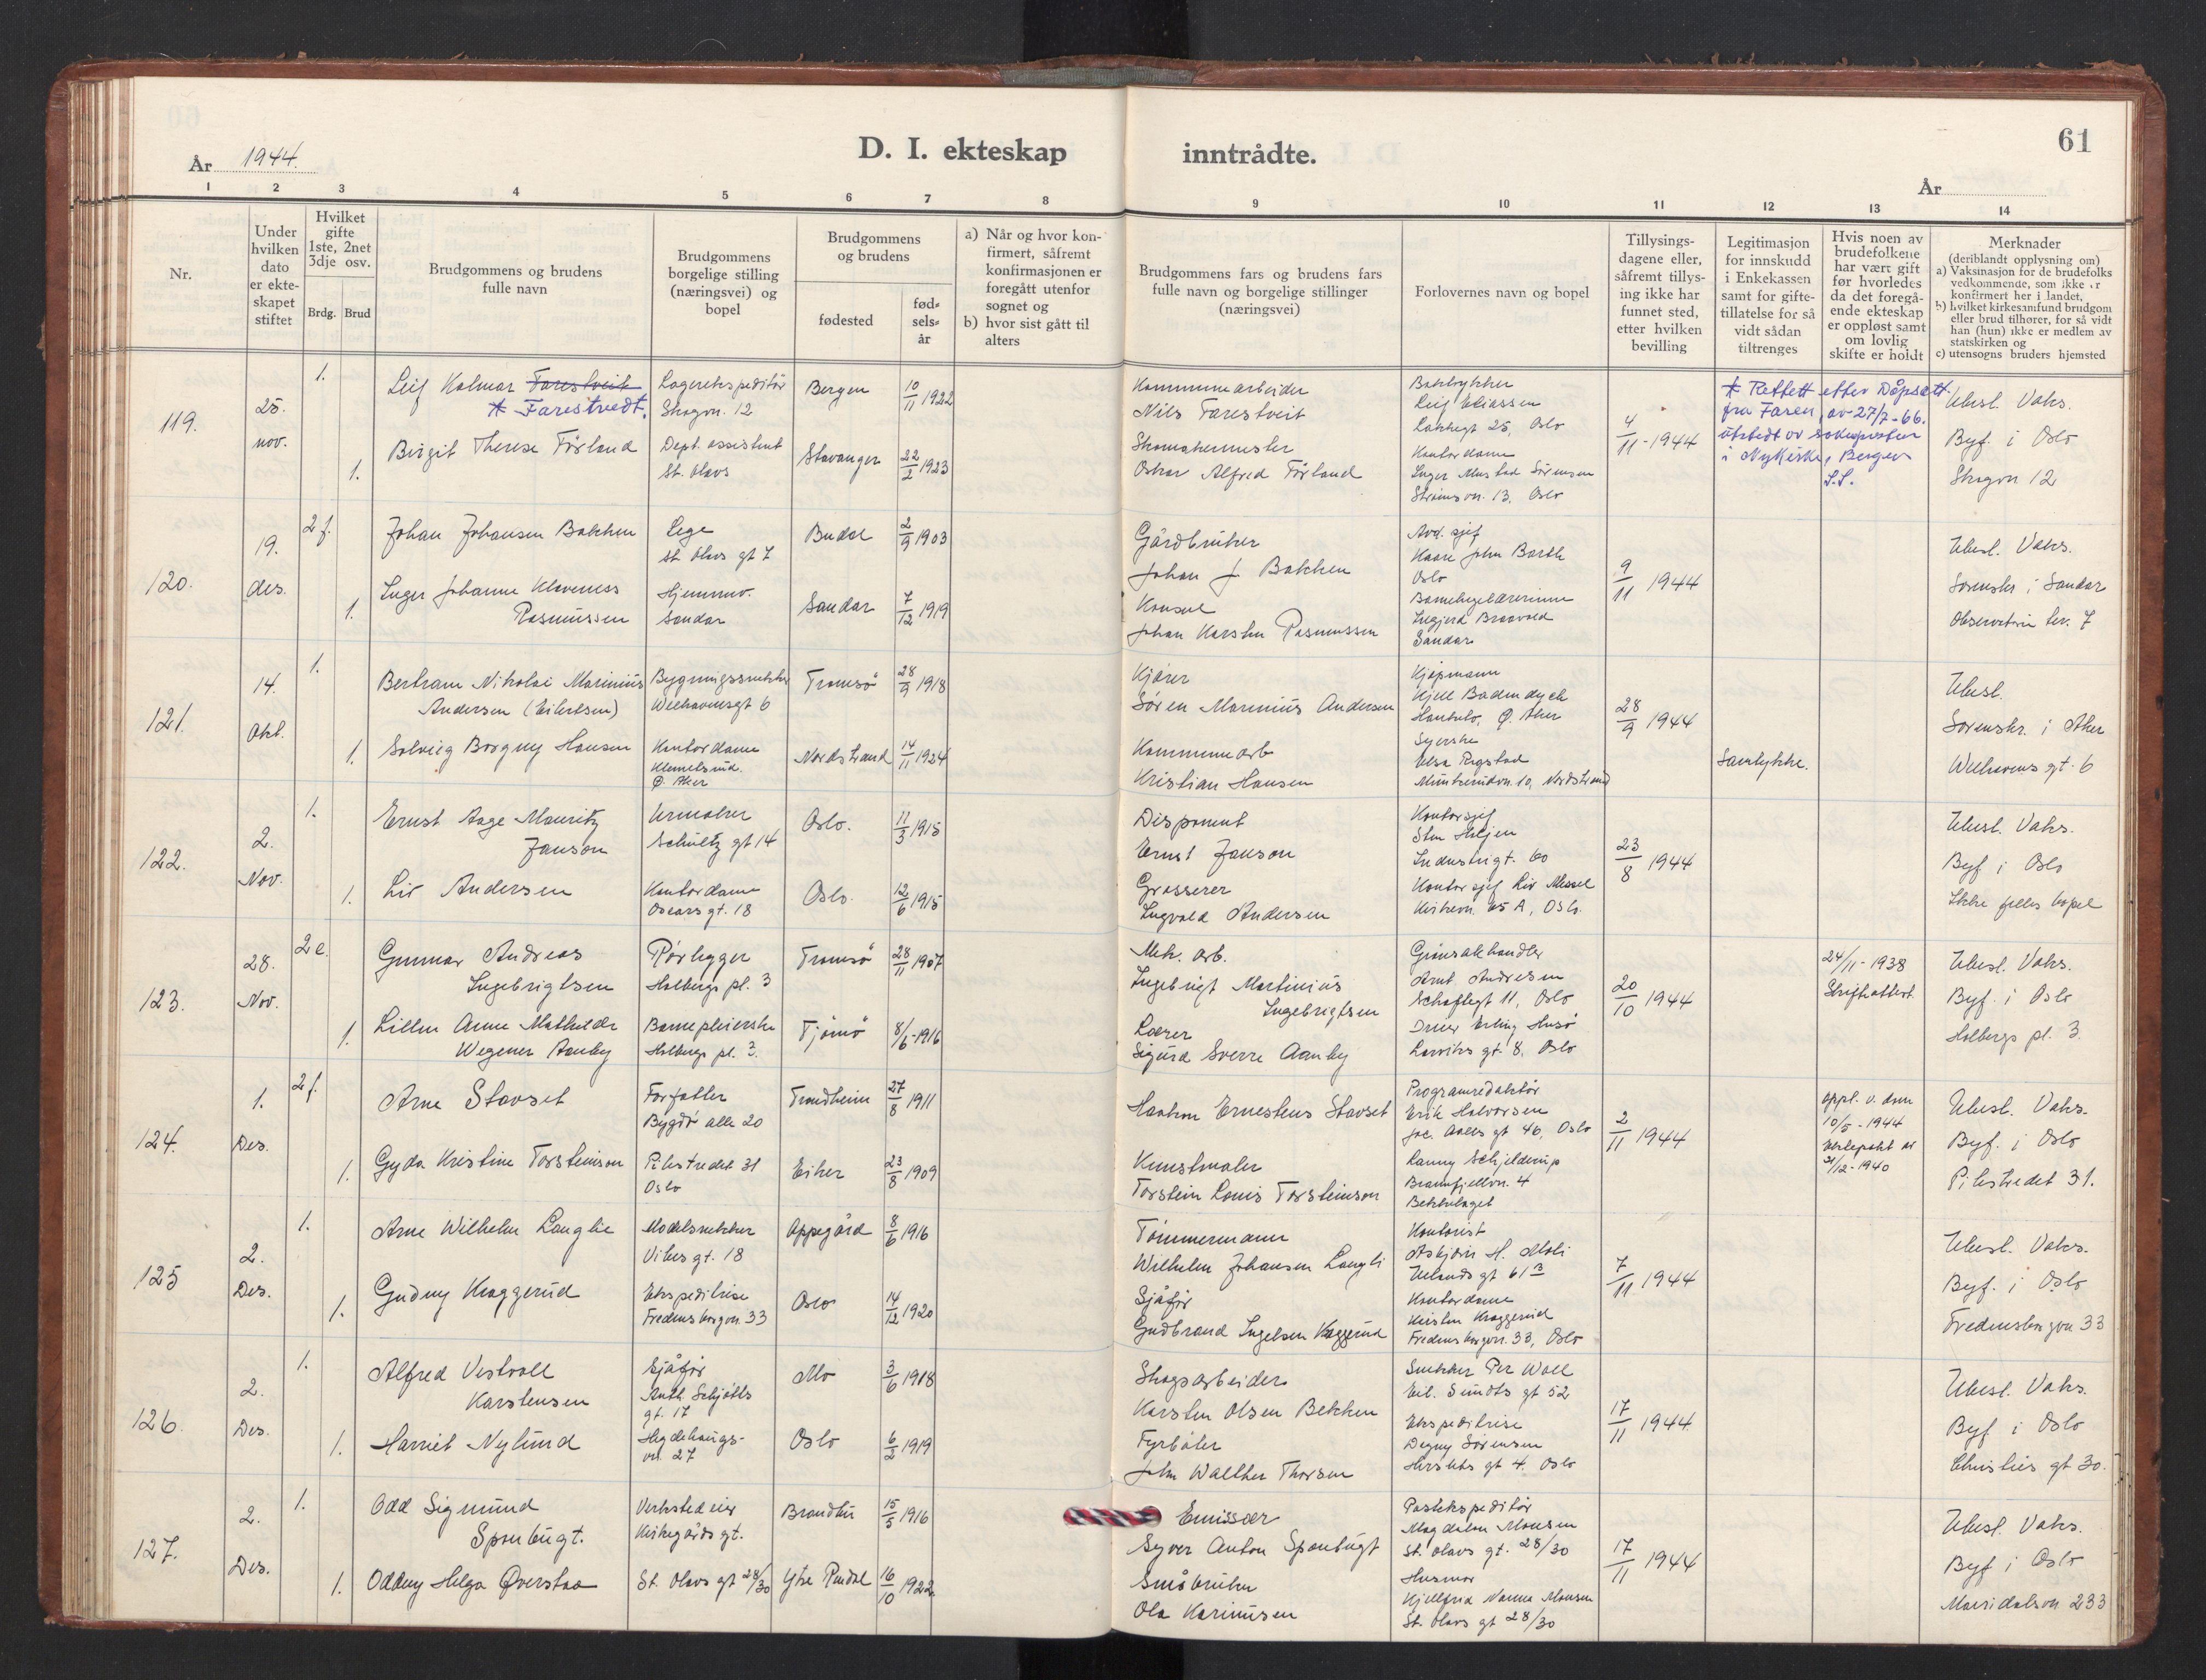 År 1944.
D. I. ekteskap
inntrådte.
61
År
1 2 3 4 5 6 7 8
9 10 11 12 13 14
Nr.
Under hvilken dato er ekte-skapet stiftet
Hvilket gifte 1ste, 2net 3dje osv.
Brdg. Brud
Brudgommens og brudens fulle navn
Brudgommens borgelige stilling (næringsvei) og bopel
Brudgommens og brudens
fødested
fød-sels-år
a) Når og hvor kon-firmert, såfremt konfirmasjonen er foregått utenfor sognet og
b) hvor sist gått til alters
Brudgommens fars og brudens fars fulle navn og borgelige stillinger (næringsvei)
Forlovernes navn og bopel
Tillysings-dagene eller, såfremt tillys-ing ikke har funnet sted, etter hvilken bevilling
Legitimasjon for innskudd i Enkekassen samt for gifte-tillatelse for så vidt sådan tiltrenges
Hvis noen av brudefolkene har vært gift før hvorledes da det foregå-ende ekteskap er oppløst samt om lovlig skifte er holdt
Merknader
(deriblandt opplysning om)
a) Vaksinasjon for de brudefolks vedkommende, som ikke er konfirmert her i landet,
b) hvilket kirkesamfund brudgom eller brud tilhører, for så vidt han (hun) ikke er medlem av statskirken og
c) utensogns bruders hjemsted
119.
25. nov.
1.
1.
Leif Kolmar Farestveit
* Farestvedt.
Birgit Therese Förland
Lagerekspeditør
Skogvn. 12
Dept. assistent
St. Olavs
Bergen
10/11 1922
Stavanger
22/2 1923
Kommunearbeider
Nils Farestveit
Skomakermester
Oskar Alfred Förland
Boktrykker
Leif Eliassen
Lakkegt 25, Oslo
Kontordame
Inger Mustad Sörensen
Strömsvn. 13, Oslo
4/11-1944
* Rettett etter Dåpsatt.
fra Faren, av 27/7-66.
utstedt av sokneprosten
i Nykirke, Bergen
S.S.
Ubesl. Vaks.
Byf. i Oslo
Skogvn 12
120.
19. des.
2 f.
1.
Johan Johansen Bakken
Inger Johanne Klaveness
Rasmussen
Lege
St. Olavs gt 7
Hjemmev.
Sandar
Budal
2/9 1903
Sandar
7/12 1919
Gårdbruker
Johan J. Bakken
Konsul
Johan Karsten Rasmussen
Avd. sjef
Kaare John Barth
Oslo
Barnehagelærerinne
Ingjerd Braavold
Sandar
9/11 1944
Ubesl. Vaks.
Sorenskr. i Sandar
Observatorie ter. 7
121.
14. Okt.
1.
1.
Bertram Nikolai Marinius
Andersen (Eilertsen)
Solveig Borgny Hansen
Bygningssnekker
Welhavensgt 6
Kontordame
Klemetsrud.
Ø. Aker
Tromsö
28/9 1918
Nordstrand
14/11 1924
Kjører
Søren Marinius Andersen
Kommunearb
Kristian Hansen
Kjøpmann
Kjell Badendyck
Hauketo, Ø. Aker
Syerske
Elsa Rugstad
Munkerudvn. 10, Nordstrand
28/9 1944
Samtykke.
Ubesl.
Sorenskr. i Aker
Welhavens gt. 6
122.
2. Nov.
1.
1.
Ernst Aage Mauritz
Janson
Liv Andersen
Urmaker
Schultz gt 14
Kontordame
Oscars gt. 18
Oslo.
11/3 1915
Oslo.
12/6 1915
Disponent
Ernst Janson
Grosserer
Ingvald Andersen
Kontorsjef
Industrigt. 60
Kontorsjef Liv Messel
Kirkevn. 65 A, Oslo.
23/8 1944
Ubesl. Vaks.
Byf i Oslo
Ikke felles bopel
123.
28. Nov.
2 e.
1.
Gunnar Andreas
Ingebrigtsen
Lillen Anne Mathilde
Wegener Aanby
Rørlegger
Holbergs pl. 3
Barnepleierske
Holbergs pl. 3.
Tromsö
28/11 1907
Tjömö
8/6-1916
Mek. arb.
Ingebrigt Martinius
Ingebrigtsen
Lærer
Sigurd Sverre Aanby
Grönsakhandler
Arnt Andresen
Schaftegt 11, Oslo
Dreier Erling Husö
Larviks gt. 8, Oslo
20/10 1944
24/11-1938
Skifteattest.
Ubesl. Vaks.
Byf. i Oslo
Holbergs pl. 3.
124.
1. Des.
2 f.
1.
Arne Stavset
Gyda Kristine Torsteinson
Forfatter
Bygdö alle 20
Pilestredet 31
Oslo
Trondheim
27/8 1911
Eiker
23/8 1909
Haakon Ernestens Stavset
Kunstmaler
Torstein Louis Torsteinson
Programredaktör
Erik Halvorsen
Jac. Aalls gt 46, Oslo
Ranny Schjelderup
Bramfjellvn. 4
Bekkelaget
2/11 1944
oppl. v. dom
10/5-1944
Ektepakt av
31/12-1940
Ubesl. Vaks.
Byf. i Oslo
Pilestredet 31.
125
2. Des.
1.
1.
Arne Wilhelm Langlie
Gudny Kraggerud
Modelsnekker
Vibes gt. 18
Ekspeditrise
Fredensborgvn 33
Oppegård
8/6 1916
Oslo
14/12 1920
Tömmermann
Wilhelm Johansen Langli
Sjåför
Gudbrand Ingelsen Kraggerud
Kontorist
Asbjörn H. Moli
Uelands gt 61 B
Kontordame
Kirsten Kraggerud
Fredensborgvn. 33, Oslo
7/11 1944
Ubesl. Vaks.
Byf. i Oslo
Fredensborgvn 33
126.
2. Des.
1.
1.
Alfred Vestvoll
Karstensen
Harriet Nylund
Sjåfør
Math. Schjøtts
gt. 17
Hegdehaugs-
vn. 27
Mo
3/6 1918
Oslo
6/2 1919
Skogsarbeider
Karsten Olsen Bekken
Fyrbøter
John Walther Thorsen
Snekker Per Woll
Eil. Sundts gt 52
Ekspeditrise
Dagny Sörensen
Herslebs gt 4. Oslo
17/11 1944.
Ubesl. Vaks.
Byf i Oslo
Christies gt 30.
127.
2. Des.
1.
1.
Odd Sigmund
Sponbugt.
Oddny Helga Øverstaa
Verkstedeier
Kirkegårds gt.
St. Olavs gt 28/30
Brandbu
15/5 1916
Ytre Rendal
16/10 1922
Emissær
Syver Anton Sponbugt
Småbruker
Ola Karinusen
Postekspeditör
Magdalon Monsen
St. Olavs gt. 28/30
Husmor
Kjellfrid Nanna Monsen
St. Olavs gt 28/30
17/11 1944
Ubesl. Vaks.
Byf i Oslo
Maridalsvn 233